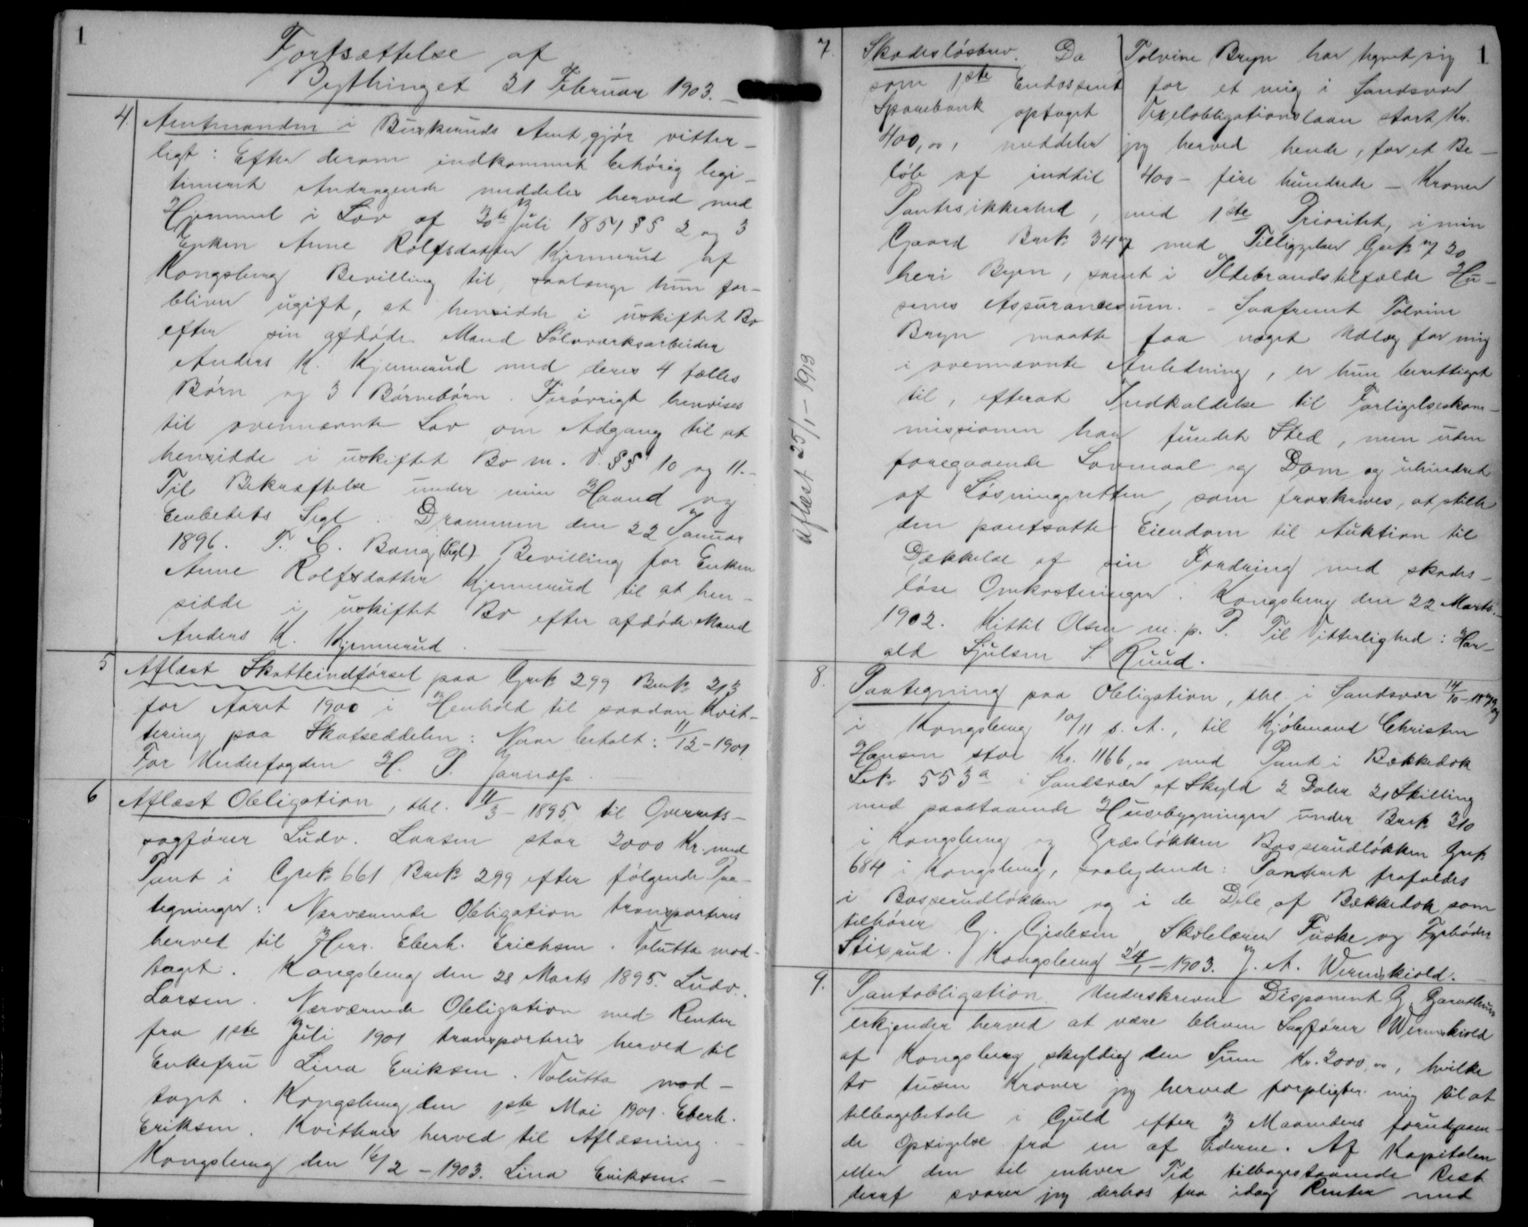 1
Fortsættelse af
Bythinget 21 Februar 1903. —
4. Amtmanden i Buskeruds Amt gjør vitter-
ligt: Efter derom indkommet behørig legi-
timeret Andragende meddeles herved med
Hjemmel i Lov af 30te Juli 1851 §§ 2 og 3
Enken Anne Rolfsdatter Kjennerud af
Kongsberg Bevilling til, saalænge hun for-
bliver ugift, at hensidde i uskiftet Bo
efter sin afdøde Mand Sølvværksarbeider
Anders K. Kjennerud med deres 4 fælles
Børn og 3 Børnebørn. Forøvrigt henvises
til ovennævnte Lov om Adgang til at
hensidde i uskiftet Bo m. V. §§ 10 og 11.-
Til Bekræftelse under min Haand og
Embedets Segl. Drammen den 22 Januar
1896. T. C. Bang (Segl). Bevilling for Enken
Anne Rolfsdatter Kjennerud til at hen-
sidde i uskiftet Bo efter afdøde Mand
Anders K. Kjennerud.
5 Aflæst Skatteindførsel paa Grk. 299 Brk. 213
for Aaret 1900 i Henhold til saadan Kvit-
tering paa Skatseddelen: Naar betalt: 11/12 - 1901
For Underfogden H. P. Jarnæss.
6 Aflæst Obligation, dhl. 11/3 - 1895 til Overrets-
sagfører Ludv. Larsen stor 2000 Kr. med
Pant i Grk. 661 Brk. 299 efter følgende Paa-
tegninger: Nærværende Obligation transporteres
herved til Herr. Eberh. Erichsen. Valutta mod-
taget. Kongsberg den 28 Marts 1895. Ludv.
Larsen. Nærværende Obligation med Renter
fra 1ste Juli 1901 transporteres herved til
Enkefru Lina Eriksen. Valutta mod-
taget. Kongsberg den 1ste Mai 1901. Eberh.
Eriksen. Kvitteres herved til Aflæsning. -
Kongsberg den 16/2 - 1903. Lina Eriksen. —
1
7. Skadesløsbrev. Da Tolvine Bryn har tegnet sig
som 1ste Endossent for et mig i Sandsvær
Sparebank optaget Vexelobligationslaan stort Kr.
400,00, meddeler jeg herved hende, for et Be-
løb af indtil 400 - fire hundrede - Kroner
Pantesikkerhed, med 1ste Prioritet, i min
Gaard Brk. 347 med Tilliggelse Grk. 720
heri Byen, samt i Ildebrandstilfælde Hu-
senes Assurancesum. - Saafremt Tolvine
Bryn maatte faa noget Udlæg for mig
i ovennævnte Anledning, er hun berettiget
til, efterat Indkaldelse til Forligelseskom-
missionen har fundet Sted, men uden
foregaaende Lovmaal og Dom og uhindret
af Løsningsretten, som fraskrives, at stille
den pantsatte Eiendom til Auktion til
Dækkelse af sin Fordring med skades-
løse Omkostninger. Kongsberg den 22 Marts
1902. Kittil Olsen m. p. P. Til Vitterlighed: Har-
ald Sjulsen S Ruud.
Aflæst 25/1 - 1913
8. Paategning paa Obligation, dhl. i Sandsvær
i Kongsberg 10/11 s. A., til Kjøbmand Christen
Hansen stor Kr. 1166,00 med Pant i Bækkedok
L.Nr. 553a i Sandsvær af Skyld 2 Daler 21 Skilling
med paastaaende Husebygninger under Brk. 310
i Kongsberg og Græsløkken Basserudløkken Grk
684 i Kongsberg, saalydende: Panteret frafaldes
i Basserudløkken og i de Dele af Bækkedok, som
tilhører G. Gislesen Skolelærer Fuske og Fyrbøder
Stixrud. Kongsberg 24/1 - 1903. J. A. Wermskiold.
9. Pantobligation. Underskrevne Disponent G.
erkjender herved at være bleven Sagfører Wermskiold
af Kongsberg skyldig den Sum Kr. 2000,00, hvilke
to tusen Kroner jeg herved forpligter mig til at
tilbagebetale i Guld efter 3 Maaneders forudgaaen-
de Opsigelse fra en af Siderne. Af Kapitalen
eller den til enhver Tid tilbagestaaende Rest
deraf svarer jeg derhos fra idag Renter med